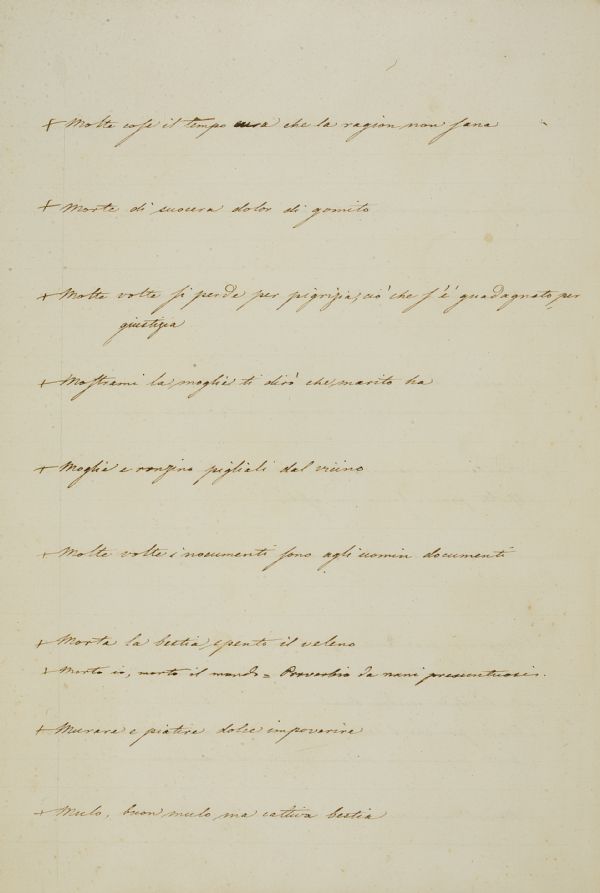 + Molte cose il tempo cura che la ragion non sana
+ Morte di suocera dolor di gomito
+ Molte volte si perde per pigrizia, ciò che s'è guadagnato per
giustizia
+ Mostrami la moglie ti dirò che marito ha
+ Moglie e ronzino pigliali dal vicino
+ Molte volte i nocumenti sono agli uomin documenti
+ Morta la bestia, spento il veleno
+ Morto io, morto il mondo = Proverbio da nani presuntuosi.
+ Murare e piatire dolce impoverire
+ Mulo, buon mulo, ma cattiva bestia